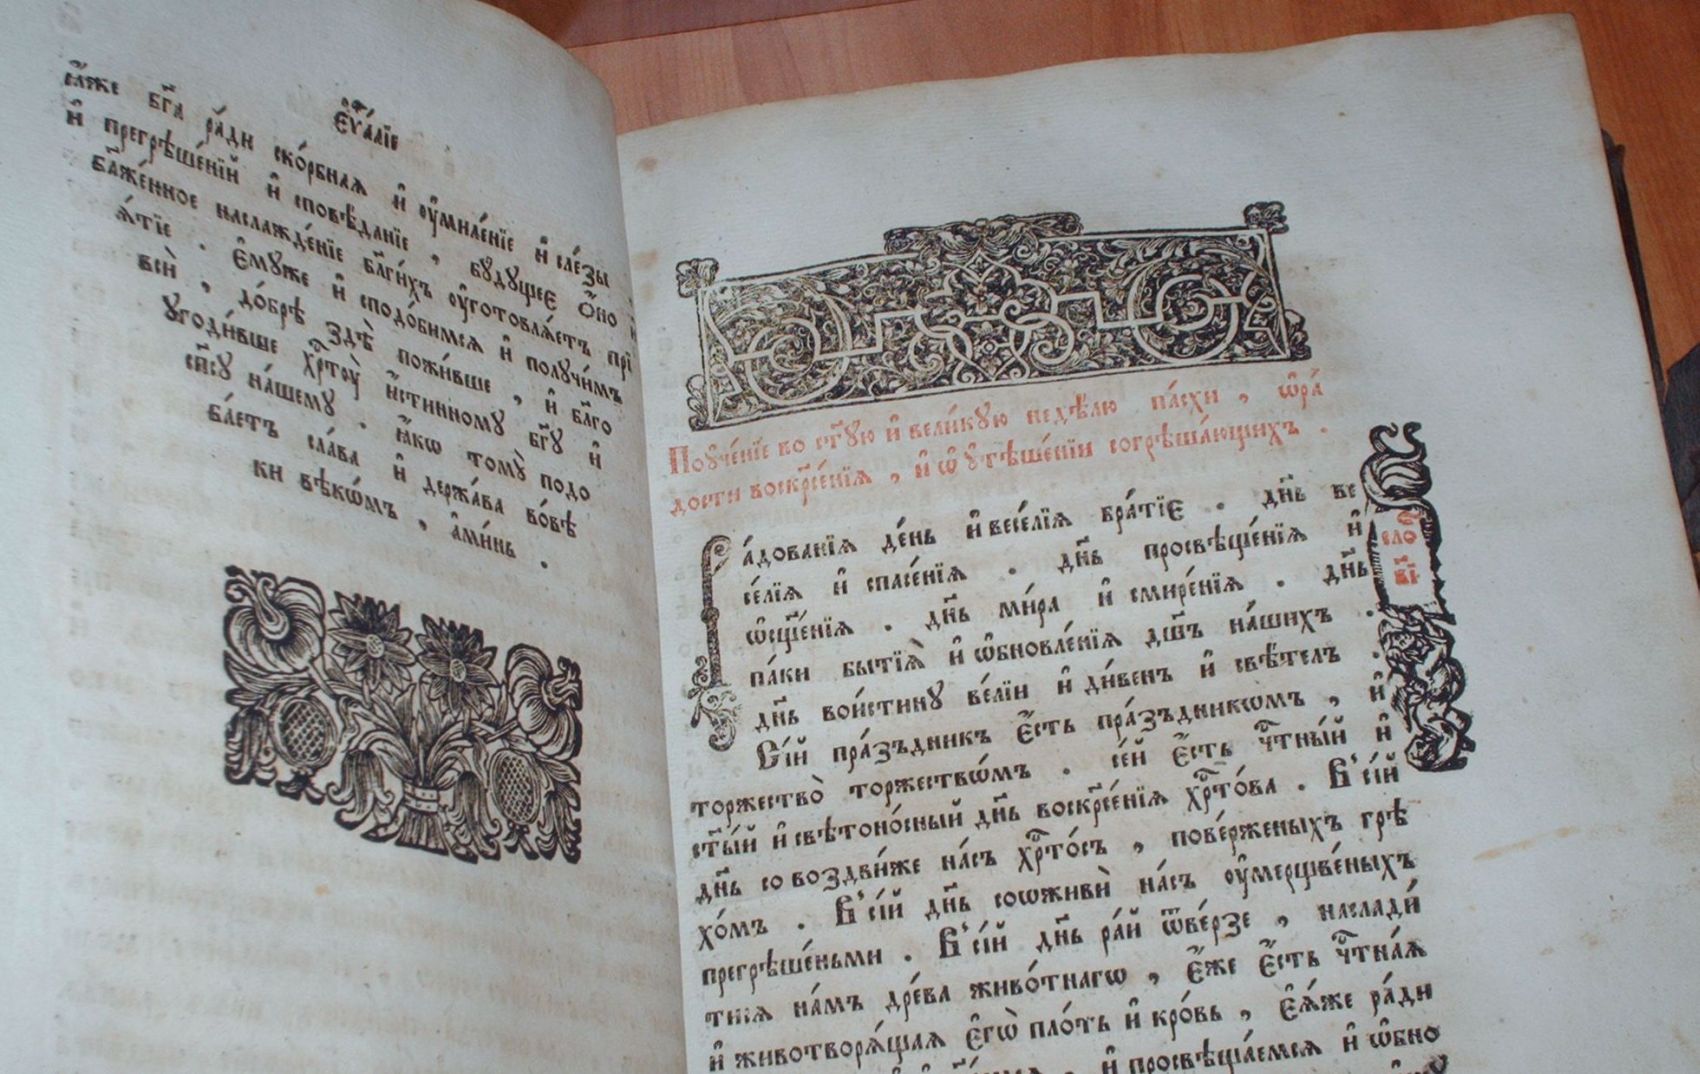 є҆ѵⷢ҇а́лїе
ꙗ҆́же бг҃а ра́ди ско́рбнаѧ и҆ ᲂу҆миле́нїе и҆ сле́зы
и҆ прегрѣше́нїй и҆сповѣ́данїе , бꙋдꙋщее ѻ҆́но и
бл҃же́нное наслажде́нїе бл҃ги́хъ ᲂу҆готовлѧ́етъ прї
ѧ́тїе . є҆мꙋже и҆ сподо́бимсѧ и҆ полꙋчи́мъ
всѝ , до́брѣ здѣ̀ пожи́вше , и҆ бл҃го
ꙋгоди́вше хрⷭ҇тꙋ̀ и҆́стинномꙋ бг҃ꙋ и҆
сп҃сꙋ на́шемꙋ . ꙗ҆́кѡ томꙋ̀ подо
ба́етъ сла́ва и҆ держа́ва во́вѣ
ки вѣкѡ́мъ , а҆ми́нь .
Поᲂу҆че́нїе во ст҃ꙋю и҆ вели́кꙋю недѣ́лю па́схи , ѡ҆ра́
дости воскрⷭ҇е́нїѧ , и҆ ѡ҆ ᲂу҆тѣше́нїи согрѣша́ющихъ .
Ра́дованїѧ де́нь и҆ весе́лїѧ бра́тїе . дн҃ь ве
се́лїѧ и҆ спасе́нїѧ . дн҃ь просвѣще́нїѧ и҆
ѡ҆сщ҃е́нїѧ . дн҃ь ми́ра и҆ смире́нїѧ . дн҃ь
па́ки бытїѧ̀ и҆ ѡ҆бновле́нїѧ дш҃ъ на́шихъ .
дн҃ь вои́стинꙋ ве́лїи и҆ ди́вен и҆ свѣ́телъ .
Сі́й пра́зъдникъ є҆́сть пра́зъдникѡмъ , и҆
торжество̀ торжествѡ́мъ . се́й є҆́сть чⷭ҇тны́й и҆
ст҃ы́й и҆ свѣтоно́сный дн҃ь воскрⷭ҇е́нїѧ хрⷭ҇то́ва . В' сі́й
дн҃ь со воздви́же на́съ хрⷭ҇то́съ , пове́рженыхъ грѣ
хо́мъ . В' сі́й дн҃ь соѡживѝ на́съ ᲂу҆мерщве́ныхъ
прегрѣше́ньми . В' сі́й дн҃ь ра́й ѿве́рзе , наслади́
тисѧ на́мъ дре́ва живо́тнагѡ , є҆́же є҆́сть чⷭ҇тна́ѧ
и҆ животворѧ́щаѧ є҆гѡ̀ пло́ть и҆ кро́вь , є҆ѧ́же ра́ди
и҆ просвѣща́емсѧ и҆ ѡ҆бно
сло
в҃і